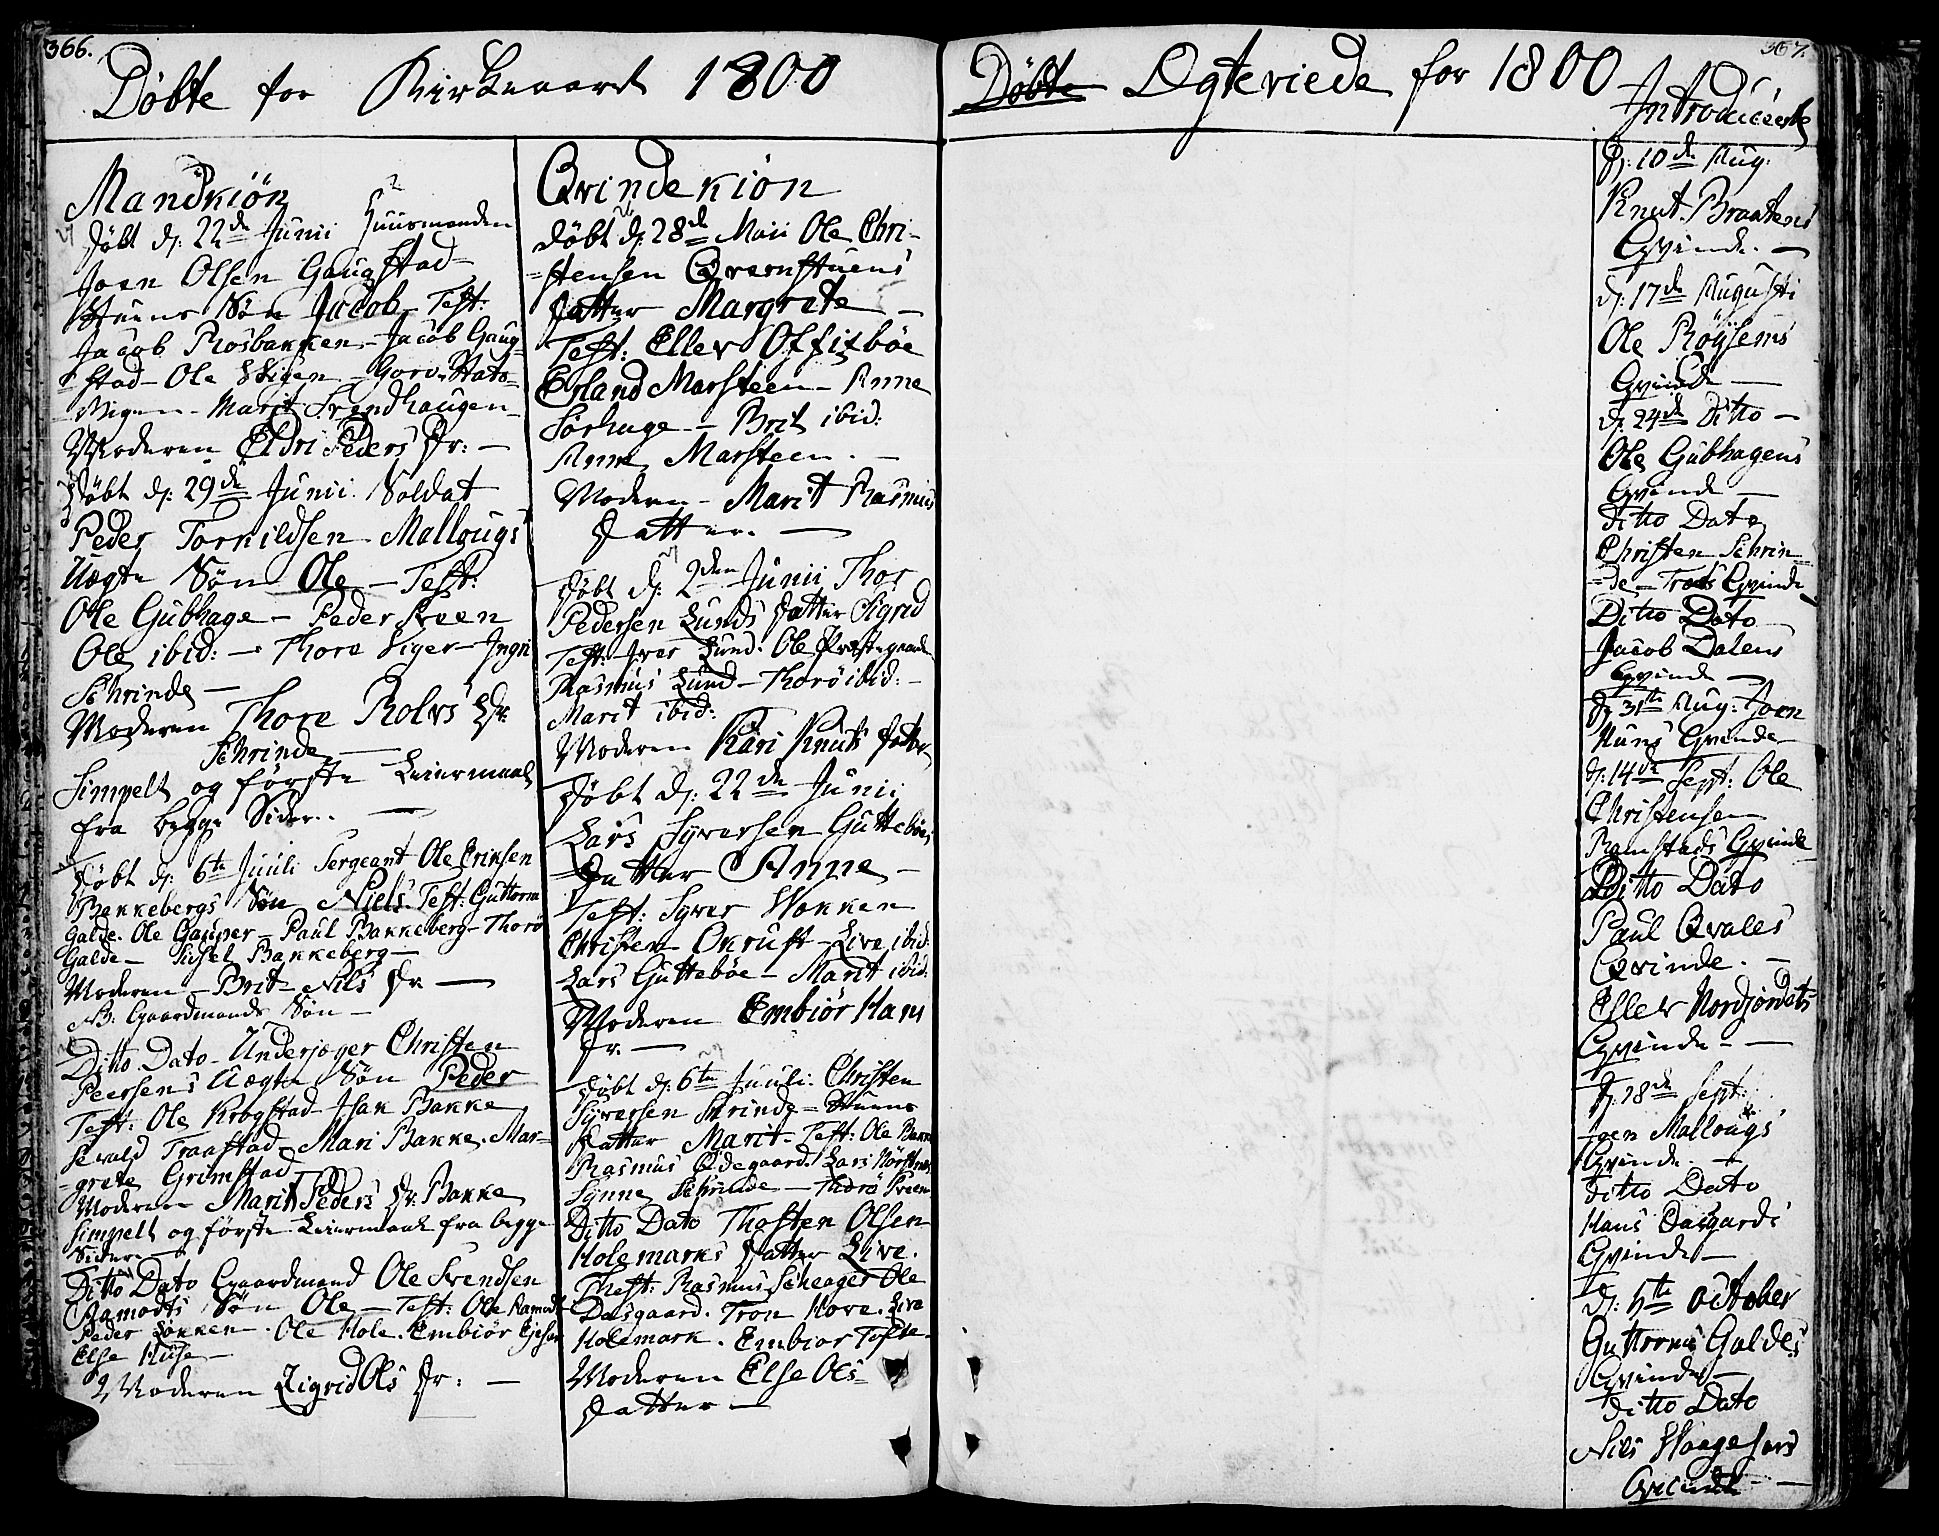 366.
Döbte for Kirkeaaret 1800
Mandkiön
Döbt d: 22de Junii Huusmanden
Joen Olsen Gaugstad-
Stuens Sön Jacob Test:
Jacob Rosbakken - Jacob Gaug-
stad - Ole Skigen - Gorv. Stats-
Vigen - Marit Svendhaugen
Moderen Eldri Peders Dr: -
Döbt d: 29de Junii Soldat
Peder Tornildsen Mallougs
Uægte Sön Ole - Test:
Ole Gubhage - Peder Sveen
Ole ibid: - Thore Siger - Ingri
Schrinde -
Moderen Thore Rolvs Dr.
Schrinde -
Simpelt og förste Leiermaal
fra begge Sider. -
Döbt d: 6te Juuli Sergeant Ole Eriksen
Bakkebergs Sön Niels Test: Guttorm
Galde. Ole Gauper - Paul Bakkeberg - Thorö
Galde - Sidsel Bakkeberg -
Moderen - Brit Nils Dr -
NB: Gaardmands Sön -
Ditto Dato - Underjæger Christen
Peersens Uægte Sön Peder
Test: Ole Krogstad - Isak Bakke
Sevald Traastad - Mari Bakke. Mar-
grete Grimstad
Moderen Marit Peders Dr. Bakke
Simpelt og förste Leiermaal fra begge
Sider -
Ditto Dato Gaardmand Ole Svendsen
Aamodts Sön Ole - Test: Ole Aamodt
Peder Lökken. Ole Hole. Embiör
Else Huse -
Moderen Zigrid Ols Dr: -
Qvindekiön
Döbt d: 28de Maii Ole Chri-
stensen Qvernstuens
Datter Margrete -
Test: Ellev Offigböe
Erland Marsteen - Anne
Sörhage - Brit ibid:
Anne Marsteen. -
Moderen - Marit Rasmus
Datter. -
Döbt d: 2den Junii Thor
Pedersen Lunds Datter Sigrid
Test: Iver Lund. Ole Præstegaard
Rasmus Lund - Thorö ibid: -
Marit ibid:
Moderen Kari Knuts Datter
Döbt d: 22de Junii
Lars Syversen Guttebös
Datter Anne -
Test: Syver Stokken
Christen Okrust - Live ibid:
Lars Guttebøe - Marit ibid:
Moderen Embiör Hans
Dr. -
Döbt d: 6te Juuli: Christen
Syversen Skrinde - Stuens
Datter Marit - Test: Ole Bakke
Rasmus Ödegaard. Lars
Synne Schrinde - Thorö Sveen
Ditto Dato Thosten Olsen
Holemarks Datter Live.
Thest: Rasmus Scheager Ole
Dasgaard. Tron Hove. Live
Holemark. Embiör Tofte -
Moderen Else Ols-
Datter -
367.
Döbte Ægteviede for 1800
Introducerte
d: 10de Aug:
Knut Braatens
Qvinde. -
d: 17de Augusti
Ole Röysems
Qvinde -
d: 24de Ditto -
Ole Gubhagens
Qvinde -
Ditto Dato
Christen Schrin-
de - Træs Qvinde
Ditto Dato
Jacob Dalens
Qvinde -
d: 31te Aug: Joen
Huns Qvinde
d: 14de Sept: Ole
Christensen
Ramstads Qvinde
Ditto Dato
Paul Qvales
Qvinde. -
Ellev Nordjordets
Qvinde - -
d: 28de Sept:
Joen Mallougs
Qvinde. -
Ditto Dato
Hans Dasgards
Qvinde -
d: 5te October
Guttorms Galdes
Qvinde -
Ditto Dato
Nils Haagesors
Qvinde - -